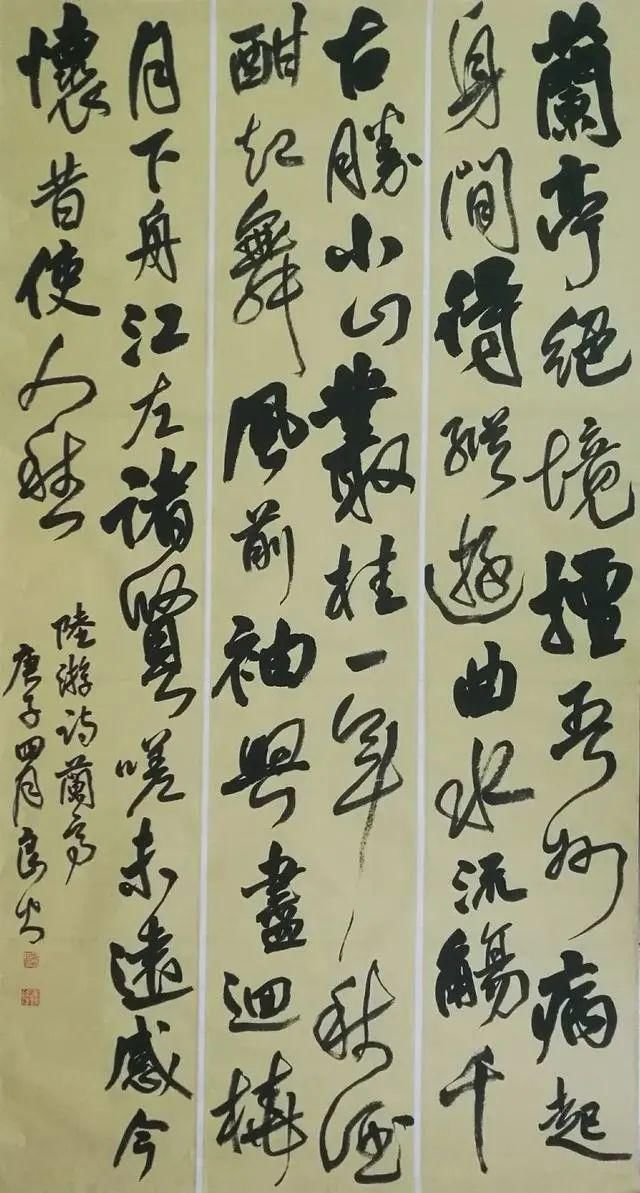 蘭亭絕境擅吾州病起
身間得縱遊曲水流觴千
古勝小山叢桂一年秋酒
酣起舞風前袖興盡迴橈
月下舟江左諸賢嗟未遠感今
懷昔使人愁
陸游詩蘭亭
庚子四月良